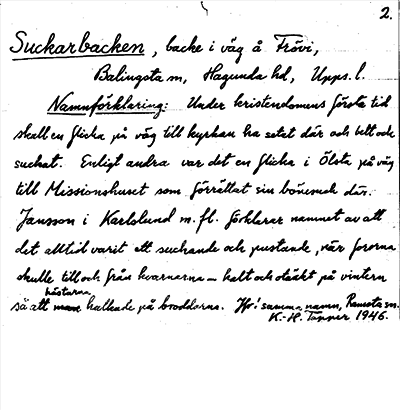 2.
Suckarbacken, backe i väg å Frövi,
Balingsta sn, Hagunda hd, Upps. l.
Namnförklaring: Under kristendomens första tid
skall en flicka på väg till kyrkan ha setat där och bett och
suckat. Enligt andra var det en flicka i Ölsta på väg
till Missionshuset som förrättat sin bönesuck där.
Jansson i Karlslund m. fl. förklarar namnet av att
det alltid varit ett suckande och pustande, när fororna
skulle till och från kvarnarna – halt och otäckt på vintern
så att hästarna halkade på broddarna. Jfr! samma namn, Ramsta sn.
K.-H. Tapper 1946.